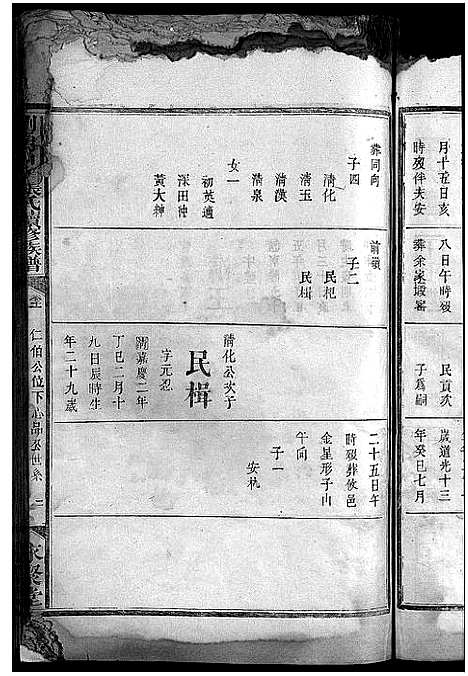 月十五日亥
時歿伴夫安
八日午時歿
葬余家塅窰
民貢次
子爲嗣
歲道光十三
年癸巳七月
葬同向
子四
清化
清玉
清漢
清泉
女一
初英適
深田沖
黃大紳
前領
子二
民杞
民楫
清化公次子
民楫
字元忍
清嘉慶二年
丁巳二月十
九日辰時生
年二十九歲
二十五日午
時歿葬攸邑
金星形子山
午向
子一
安杭
張氏續修族譜
仁伯公位下心品公世系
二